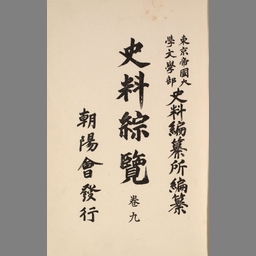 東京帝國大學文學部史料編纂所編纂
史料綜覽
卷九
朝陽會發行